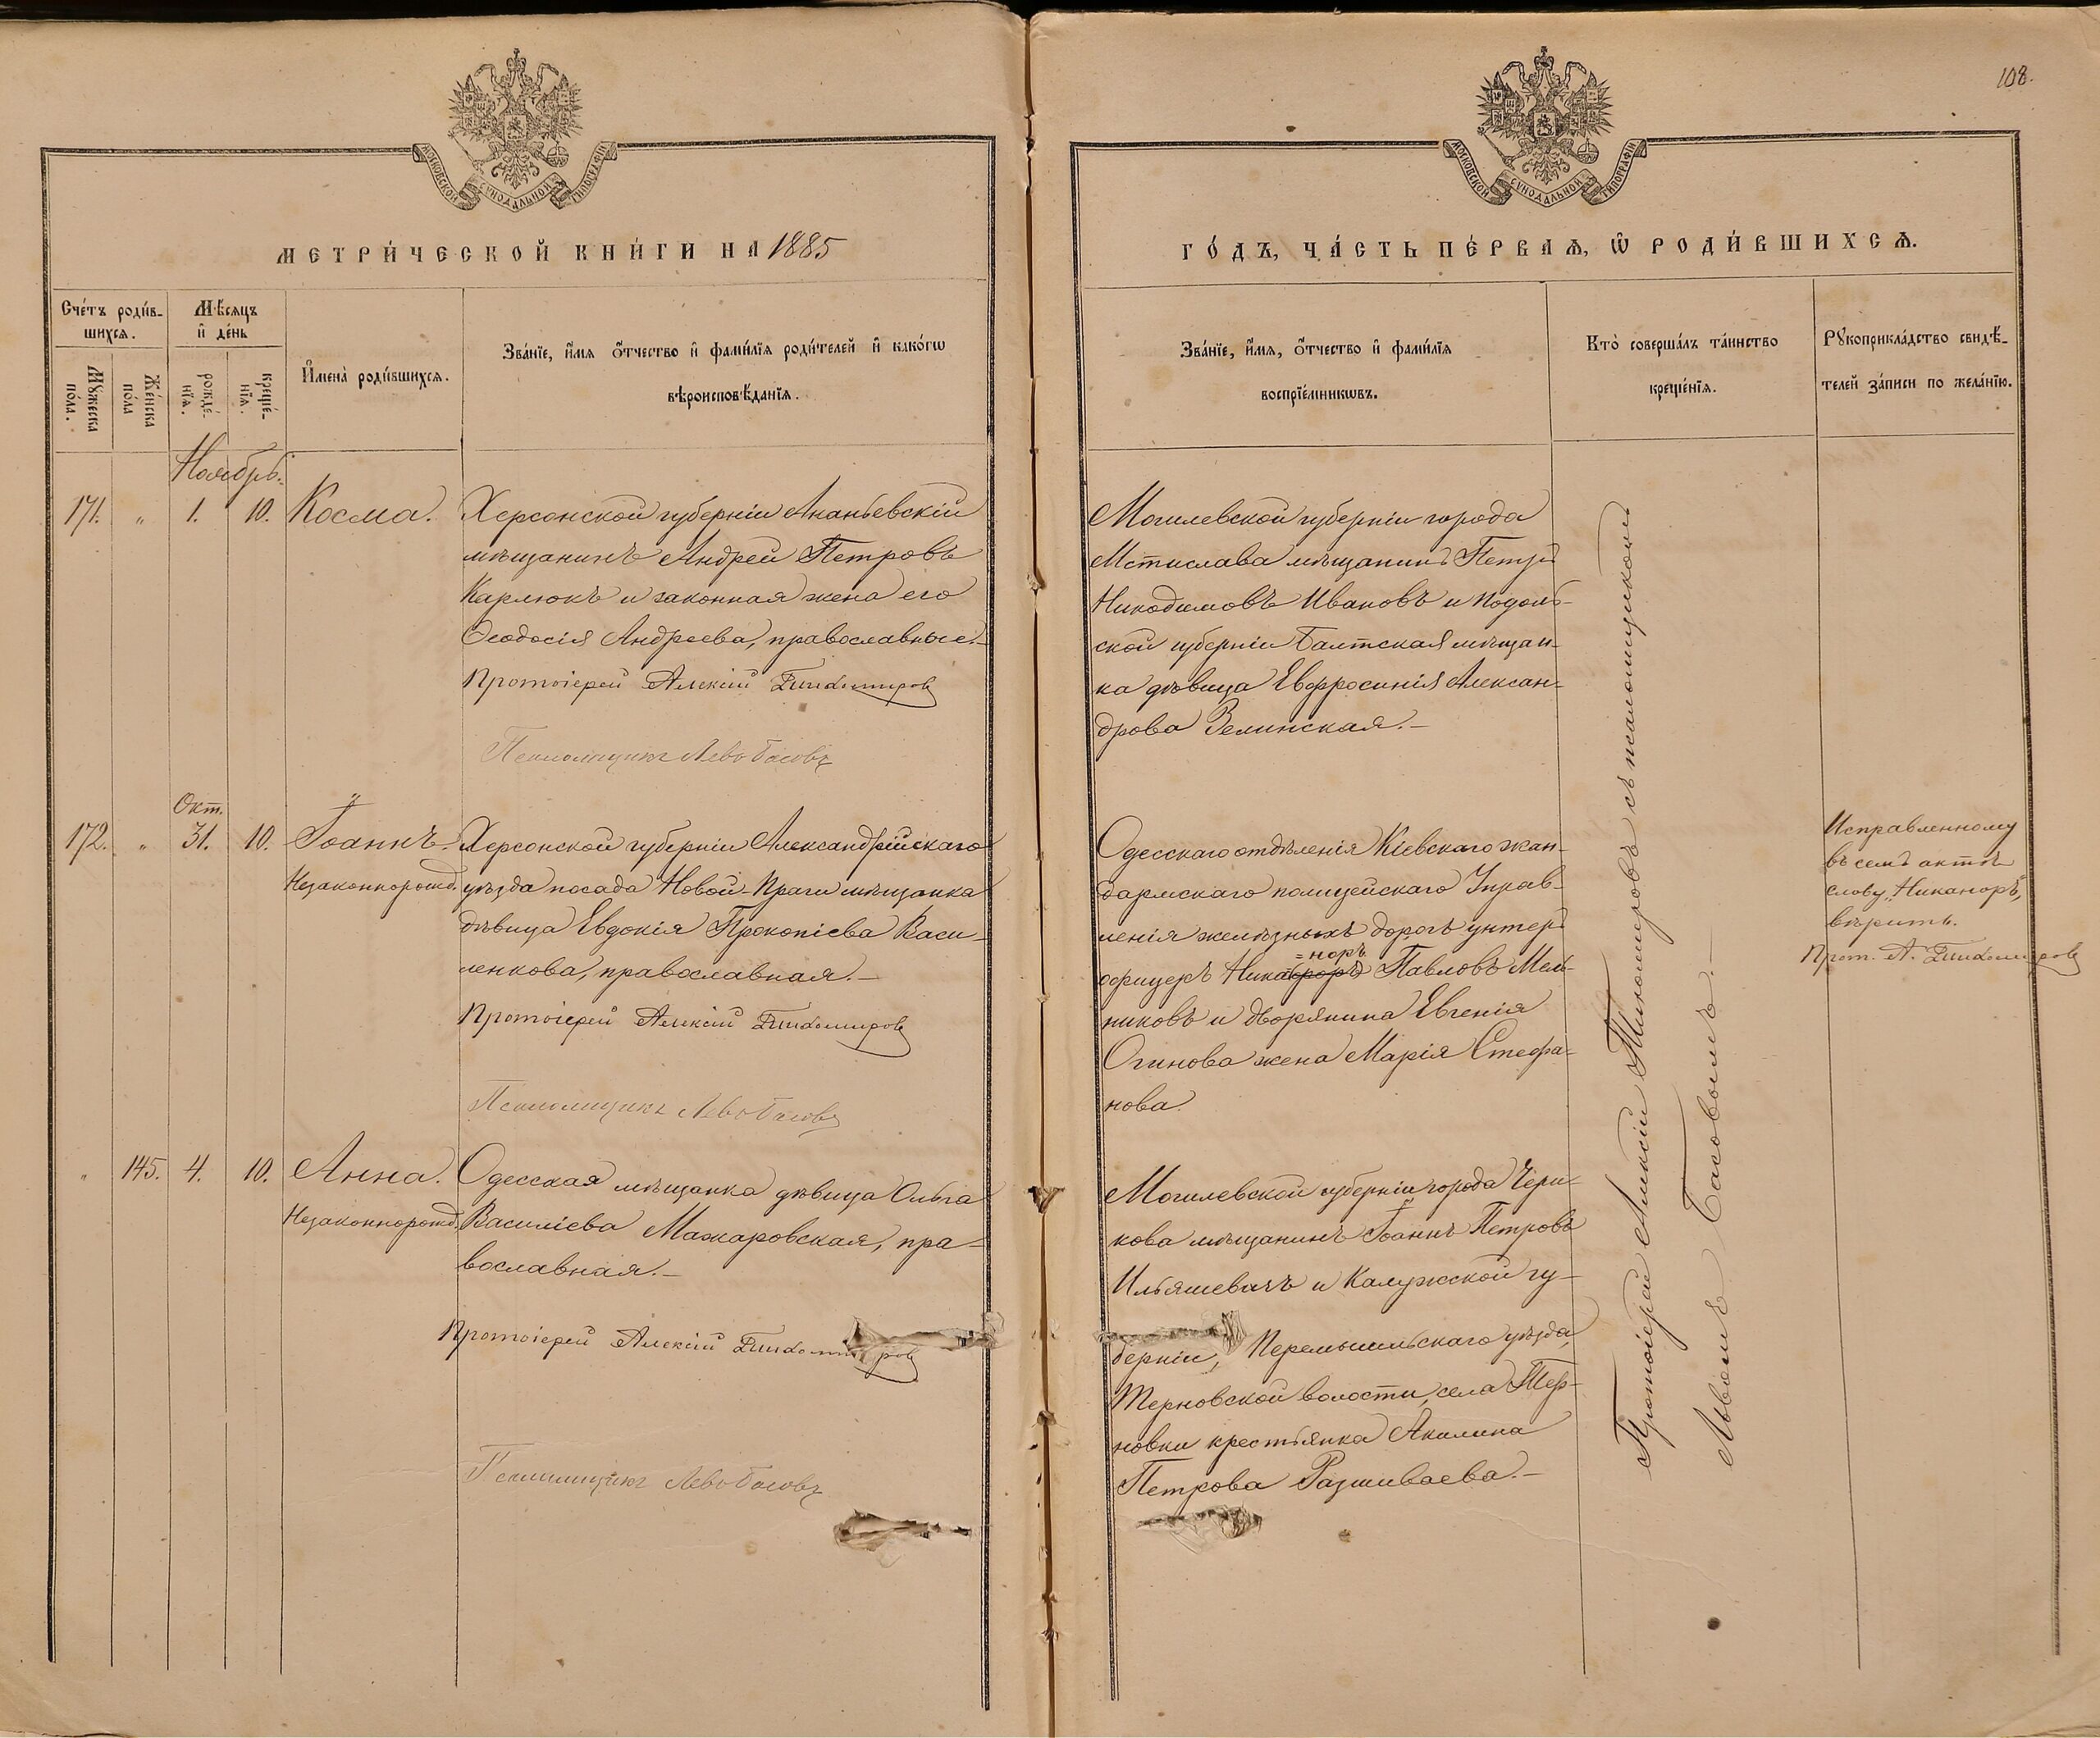 108.
МОСКОВСКОЙ СУНОДАЛЬНОЙ ТИПОГРАФІИ
МОСКОВСКОЙ СУНОДАЛЬНОЙ ТИПОГРАФІИ
МЕТРИ́ЧЕСКОЙ КНИ́ГИ НА 1885
ГО́ДЪ, ЧА́СТЬ ПЕ́РВАѦ, Ѡ҃ РОДИ́ВШИХСѦ.
Сче́тъ роди́в-
шихсѧ.
Мꙋ́жеска
по́ла.
Же́нска
по́ла
Мѣ́сѧцъ
и҆ де́нь
рожде́-
нїѧ.
креще́-
нїѧ.
И҆мена̀ роди́вшихсѧ.
Зва́нїе, и҆́мѧ ѻ҆́тчество и҆ фами́лїѧ роди́телей и҆ како́гѡ
вѣроисповѣ́данїѧ.
Зва́нїе, и҆́мѧ, ѻ҆́тчество и҆ фами́лїѧ
воспрїе́мникѡвъ.
Кто̀ соверша́лъ та́инство
креще́нїѧ.
Рꙋкоприкла́дство свидѣ́-
телей за́писи по жела́нїю.
Ноябрь.
171. „ 1. 10. Косма.
Херсонской губерніи Ананьевскій
мѣщанинъ Андрей Петровъ
Карлюкъ и законная жена его
Ѳеодосія Андреева, православные.-
Протоіерей Алексій Тихомировъ
Псаломщикъ Левъ Басовъ
Могилевской губерніи города
Мстислава мѣщанинъ Петръ
Никодимовъ Ивановъ и Подоль-
ской губерніи Балтская мѣщан-
ка дѣвица Евфросинія Алексан-
дрова Зелинская.-
Окт.
172. „ 31. 10. Іоаннъ.
Незаконнорожд.
Херсонской губерніи Александрійскаго
уѣзда посада Новой-Праги мѣщанка
дѣвица Евдокія Прокопіева Васи-
ленкова, православная.-
Протоіерей Алексій Тихомировъ
Псаломщикъ Левъ Басовъ
Одесскаго отдѣленія Кіевскаго жан-
дармскаго полицейскаго Управ-
ленія желѣзныхъ дорогъ унтеръ
=норъ
офицеръ Никафоръ Павловъ Мель-
никовъ и дворянина Евгенія
Огинова жена Марія Стефа-
нова.
Исправленному
въ семъ актѣ
слову „Никаноръ",
вѣрить.
Прот. А. Тихомировъ
„ 145. 4. 10. Анна.
Незаконнорожд.
Одесская мѣщанка дѣвица Ольга
Василіева Мажаровская, пра-
вославная.-
Протоіерей Алексій Тихомировъ
Псаломщикъ Левъ Басовъ
Могилевской губерніи города Чери-
кова мѣщанинъ Іоаннъ Петровъ
Ильяшевичъ и Калужской гу-
берніи, Перемышльскаго уѣзда,
Терновской волости, села Тер-
новки крестьянка Акилина
Петрова Разживаева.-
Протоіерей Алексій Тихомировъ съ псаломщикомъ
Львомъ Басовымъ.-